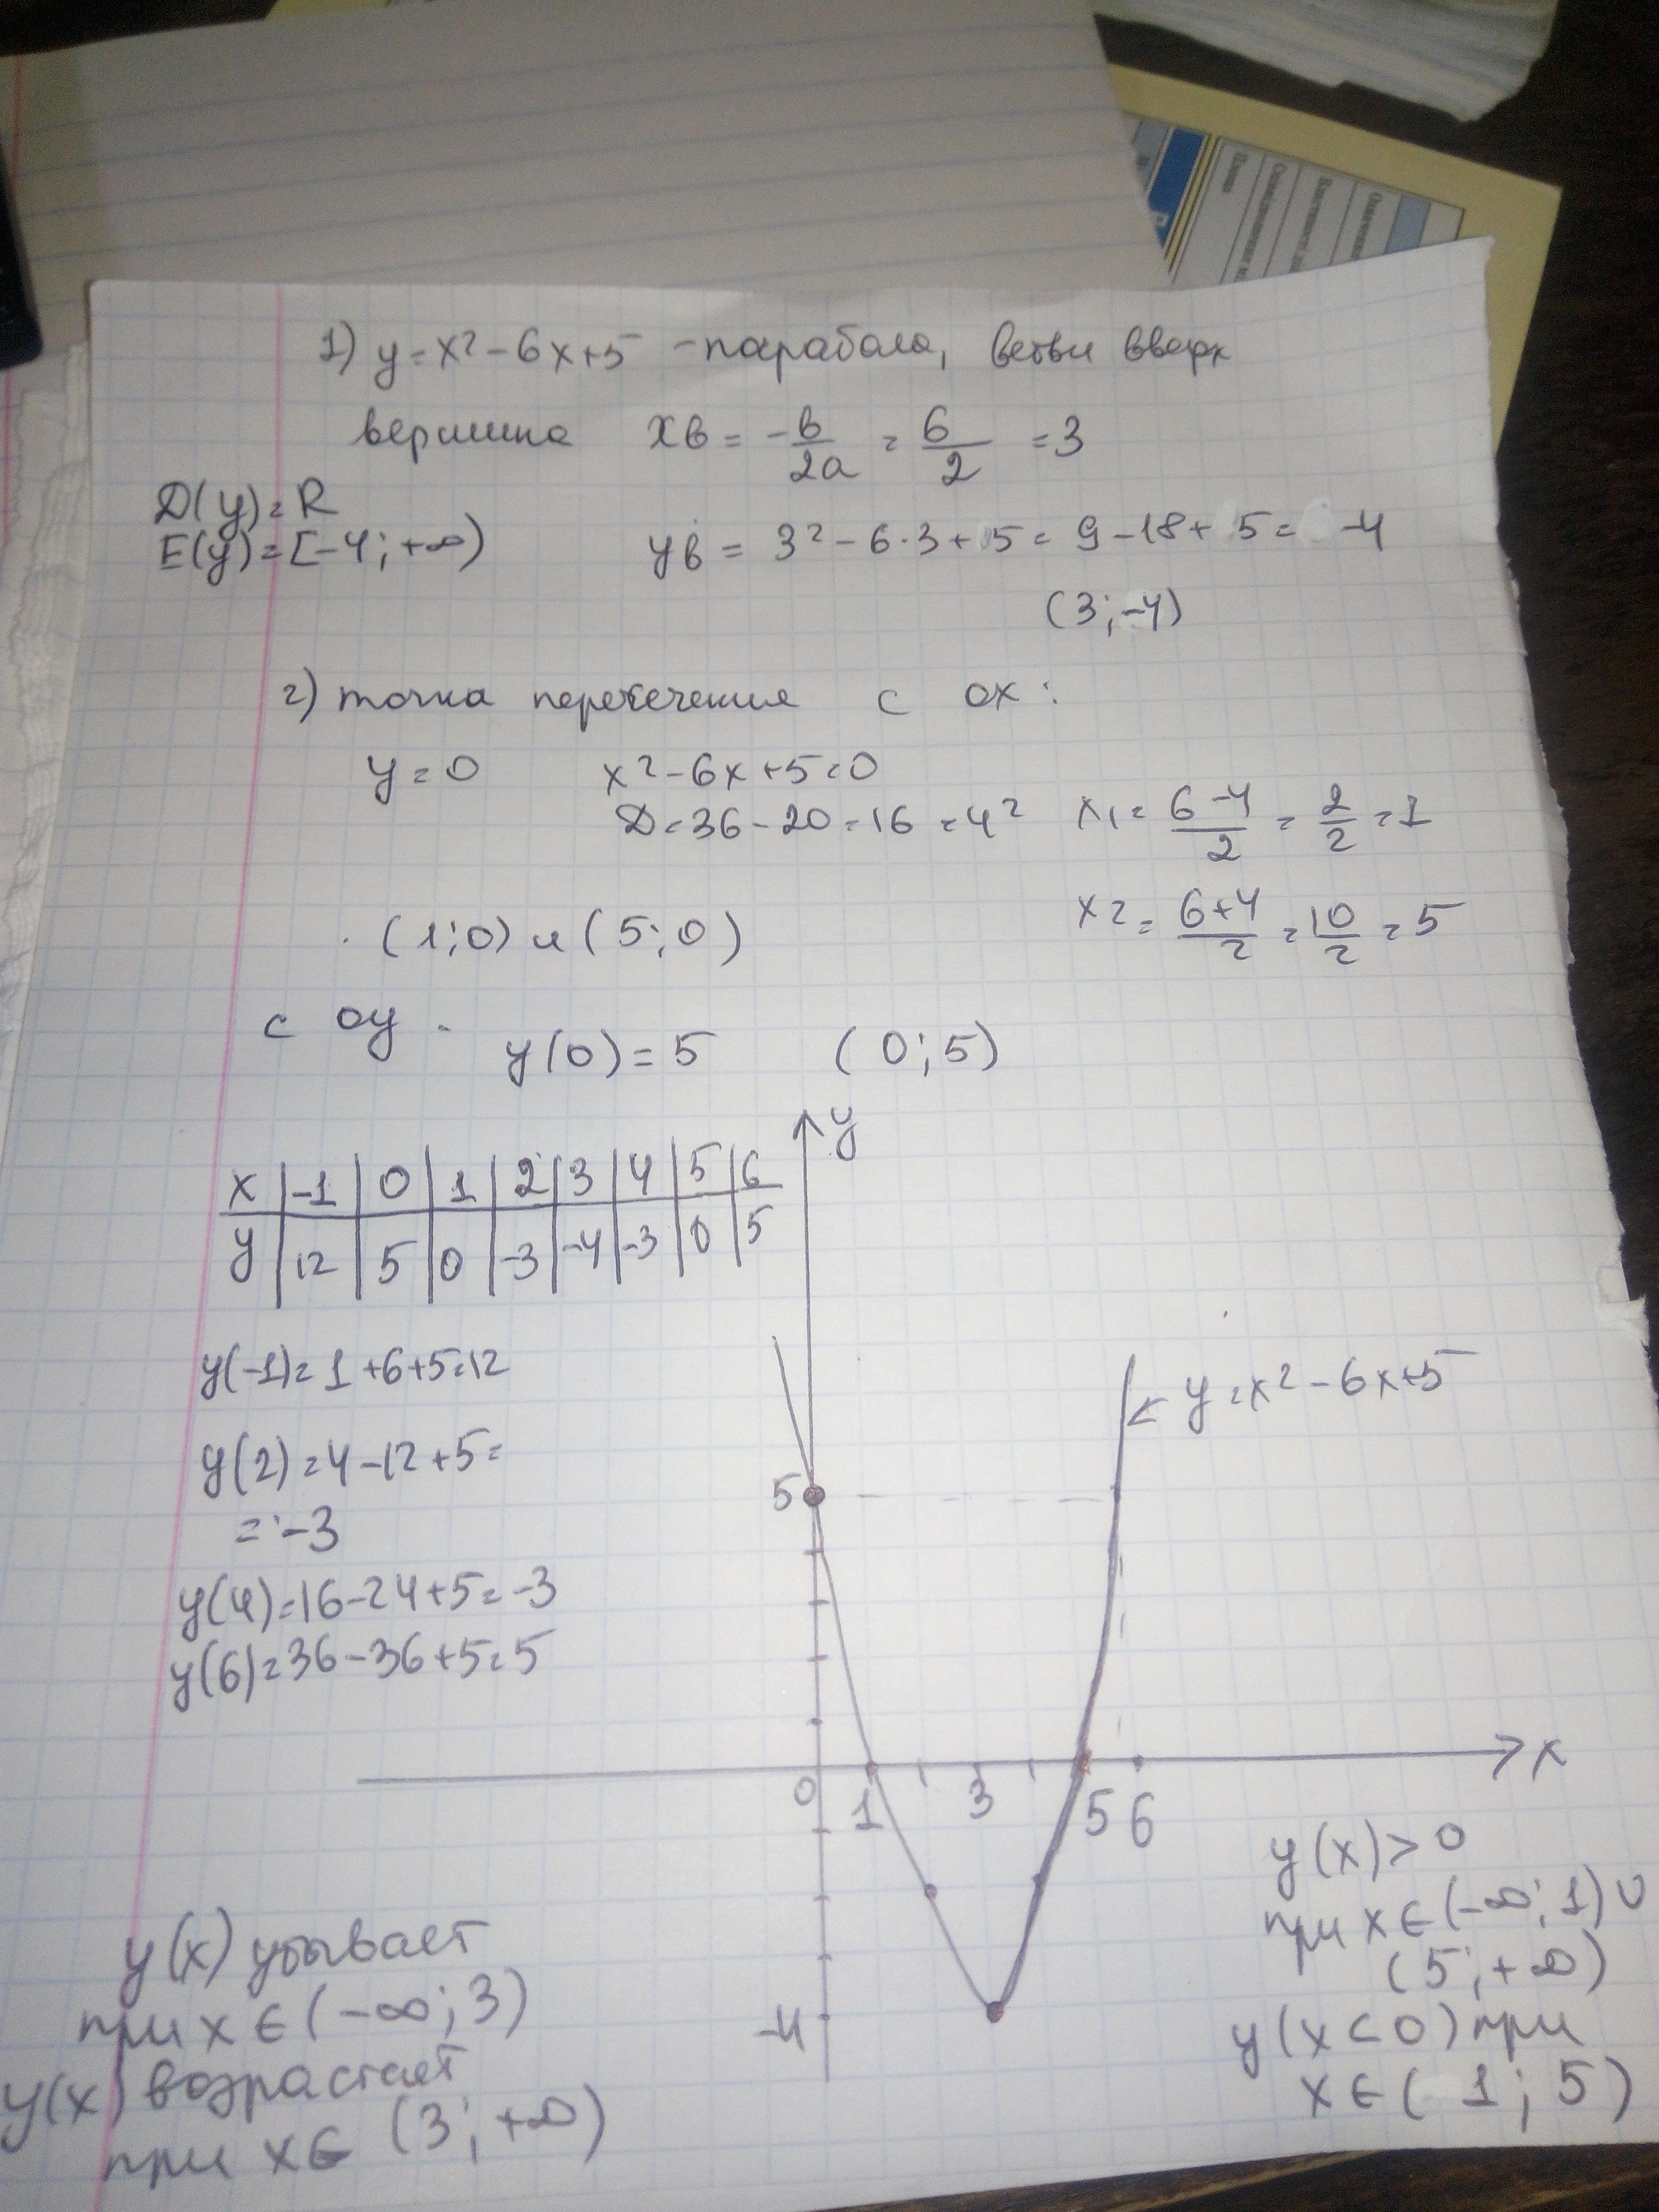 1) y = x² - 6x + 5 - парабола, ветви вверх
вершина xв = -b/2a = 6/2 = 3
D(y) = R
E(y) = [-4; +∞)
yв = 3² - 6·3 + 5 = 9 - 18 + 5 = -4
(3; -4)
2) точка пересечения с ох:
y = 0 x² - 6x + 5 = 0
D = 36 - 20 = 16 = 4² x1 = (6-4)/2 = 2/2 = 1
x2 = (6+4)/2 = 10/2 = 5
(1; 0) и (5; 0)
с оу.
y(0) = 5 (0; 5)
x | -1 | 0 | 1 | 2 | 3 | 4 | 5 | 6
y | 12 | 5 | 0 | -3 | -4 | -3 | 0 | 5
y(-1) = 1 + 6 + 5 = 12
y(2) = 4 - 12 + 5 =
= -3
y(4) = 16 - 24 + 5 = -3
y(6) = 36 - 36 + 5 = 5
y
y = x² - 6x + 5
5
x
0 1 3 5 6
-4
y(x) убывает
при x ∈ (-∞; 3)
y(x) возрастает
при x ∈ (3; +∞)
y(x) > 0
при x ∈ (-∞; 1) ∪
(5; +∞)
y(x < 0) при
x ∈ (1; 5)